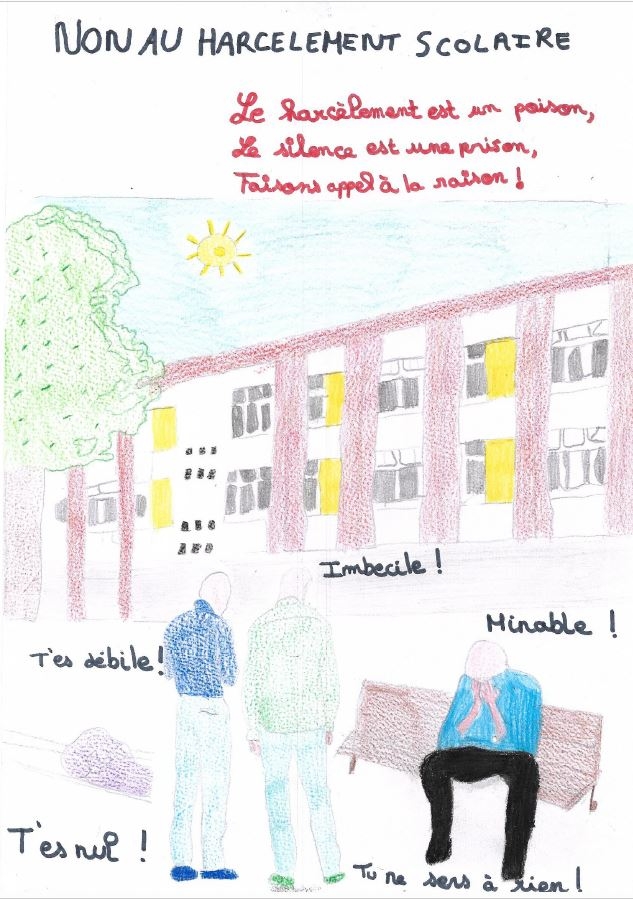 NON AU HARCELEMENT SCOLAIRE
Le harcèlement est un poison,
Le silence est une prison,
Faisons appel à la raison !
Imbecile !
Minable !
T'es débile !
T'es nul !
Tu ne sers à rien !